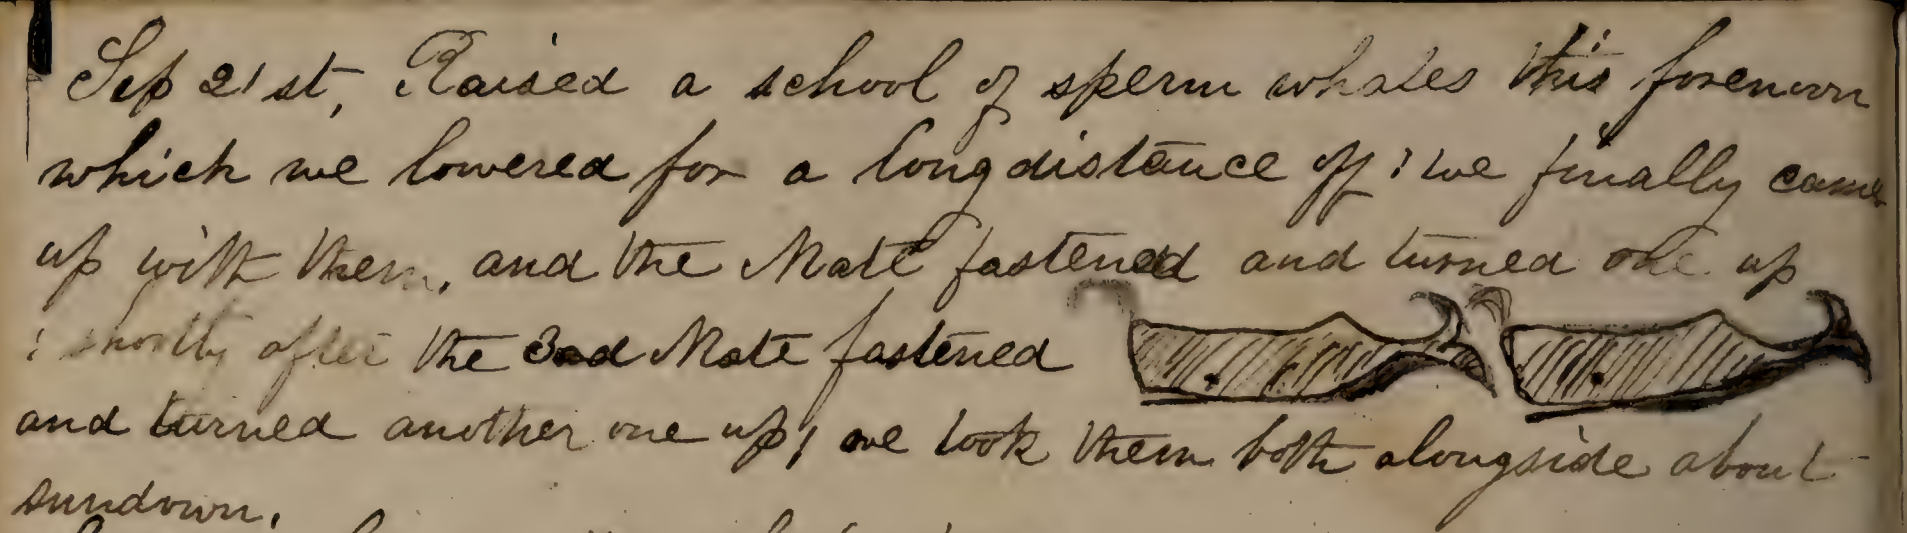 Sep 21st, Raised a school of sperm whales this forenoon
which we lowered for a long distance off; we finally came
up with them, and the Mate fastened and turned one up
; shortly after the 3rd Mate fastened
and turned another one up, we took them both alongside about
sundown.